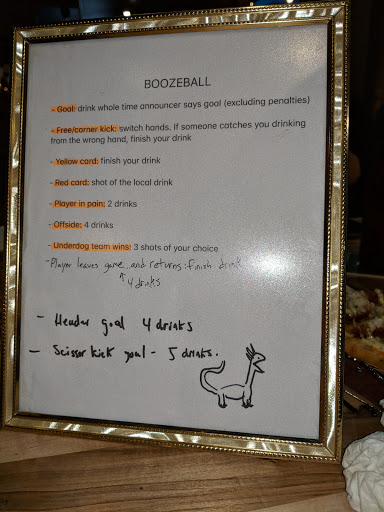 BOOZEBALL
- Goal: drink whole time announcer says goal (excluding penalties)
- Free/corner kick: switch hands. If someone catches you drinking
from the wrong hand, finish your drink
- Yellow card: finish your drink
- Red card: shot of the local drink
- Player in pain: 2 drinks
- Offside: 4 drinks
- Underdog team wins: 3 shots of your choice
- Player leaves game and returns: finish drink
↑ 4 drinks
- Header goal 4 drinks
- Scissor kick goal - 5 drinks.